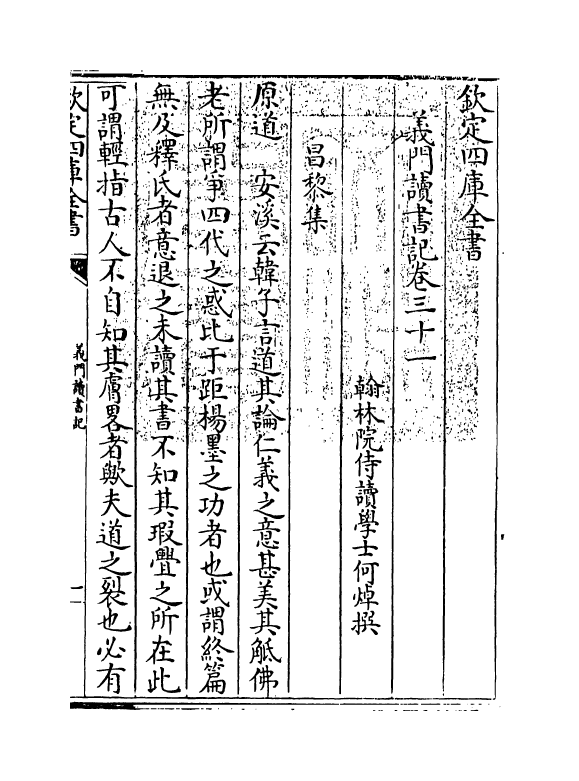 欽定四庫全書
義門讀書記卷三十一
翰林院侍讀學士何焯撰
昌黎集
原道　安溪云韓子言道其論仁義之意甚美其觝佛
老所謂爭四代之惑比于距揚墨之功者也或謂終篇
無及釋氏者意退之未讀其書不知其瑕舋之所在此
可謂輕指古人不自知其膚畧者歟夫道之裂也必有
欽定四庫全書
義門讀書記
一